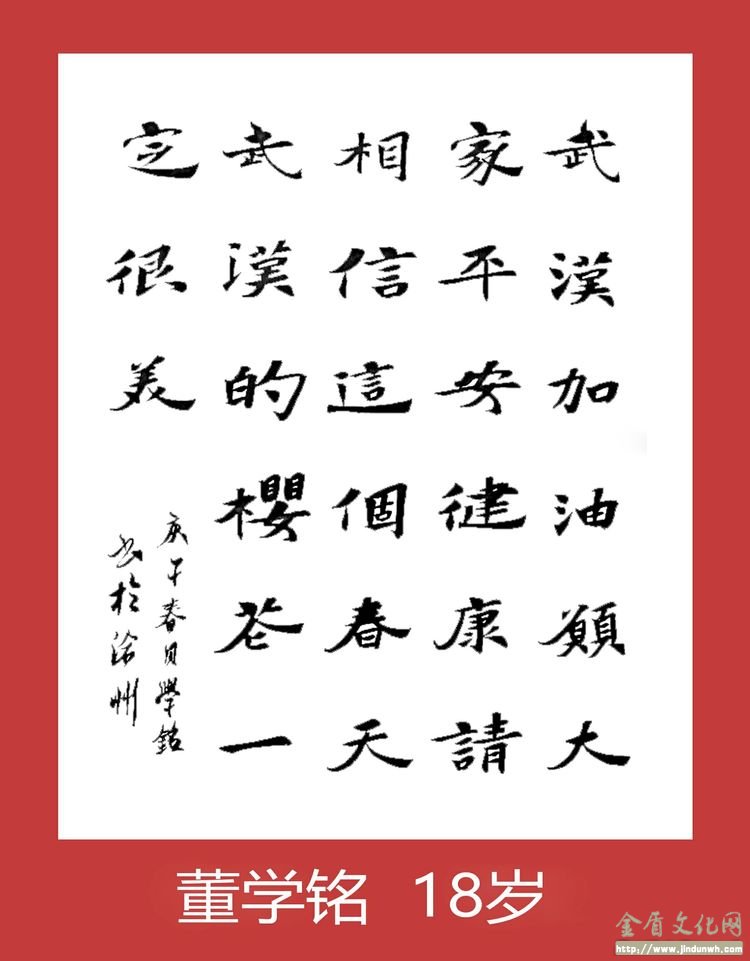 武漢加油願大
家平安健康請
相信這個春天
武漢的櫻花一
定很美
庚子春月學銘
书於徐州
董学铭 18岁
金盾文化网
http://www.jindunwh.com